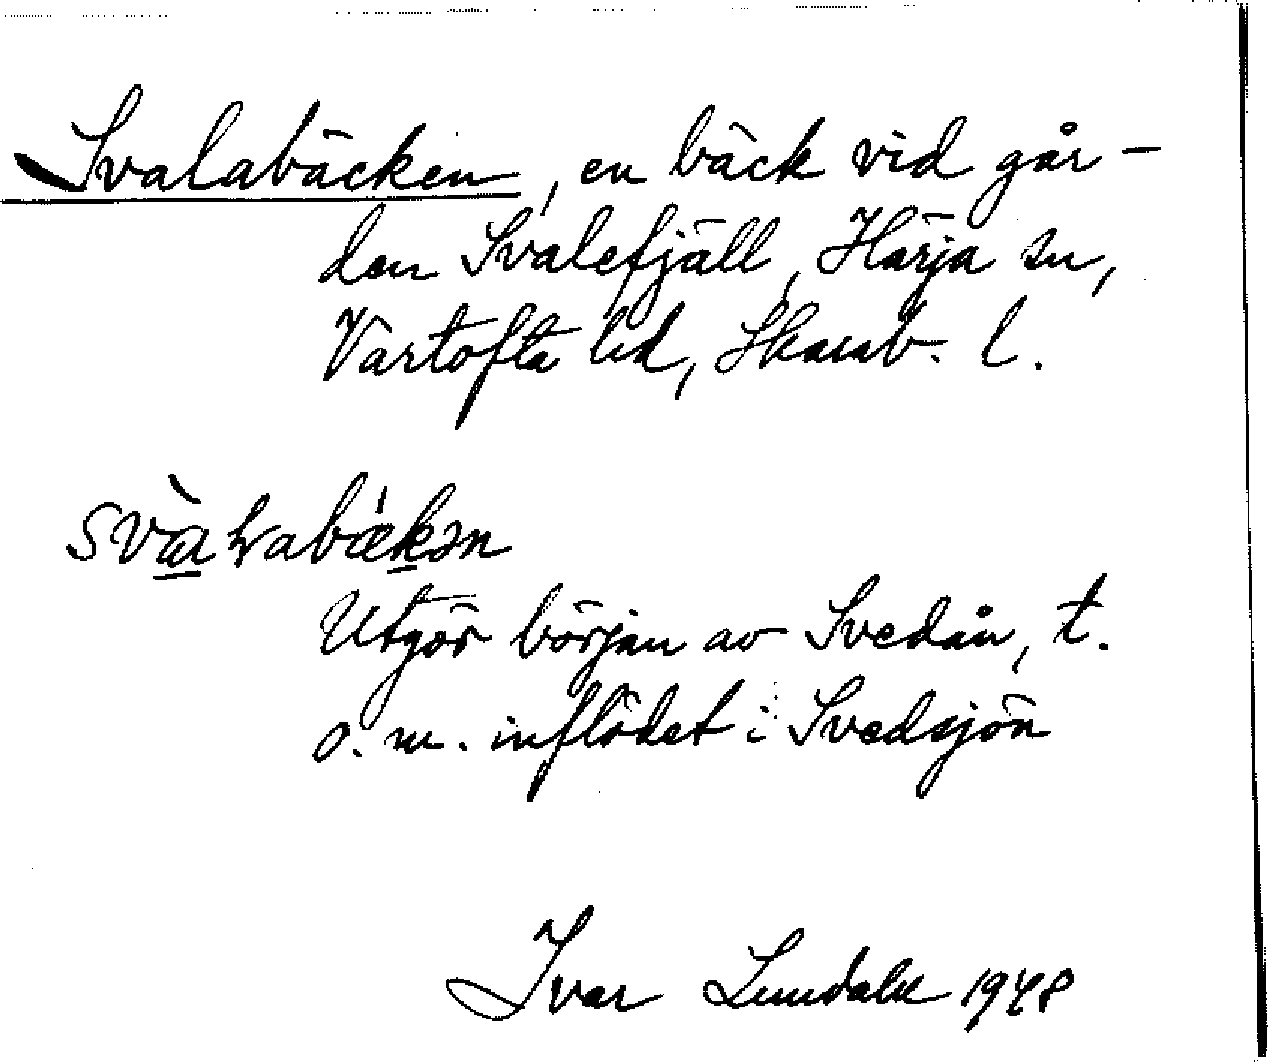 Svalabäcken, en bäck vid går-
den Svalefjäll, Härja sn,
Vartofta hd, Skarab. l.
svàɽabækən
Utgör början av Svedån, t.
o. m. inflödet i Svedsjön
Ivar Lundahl 1948